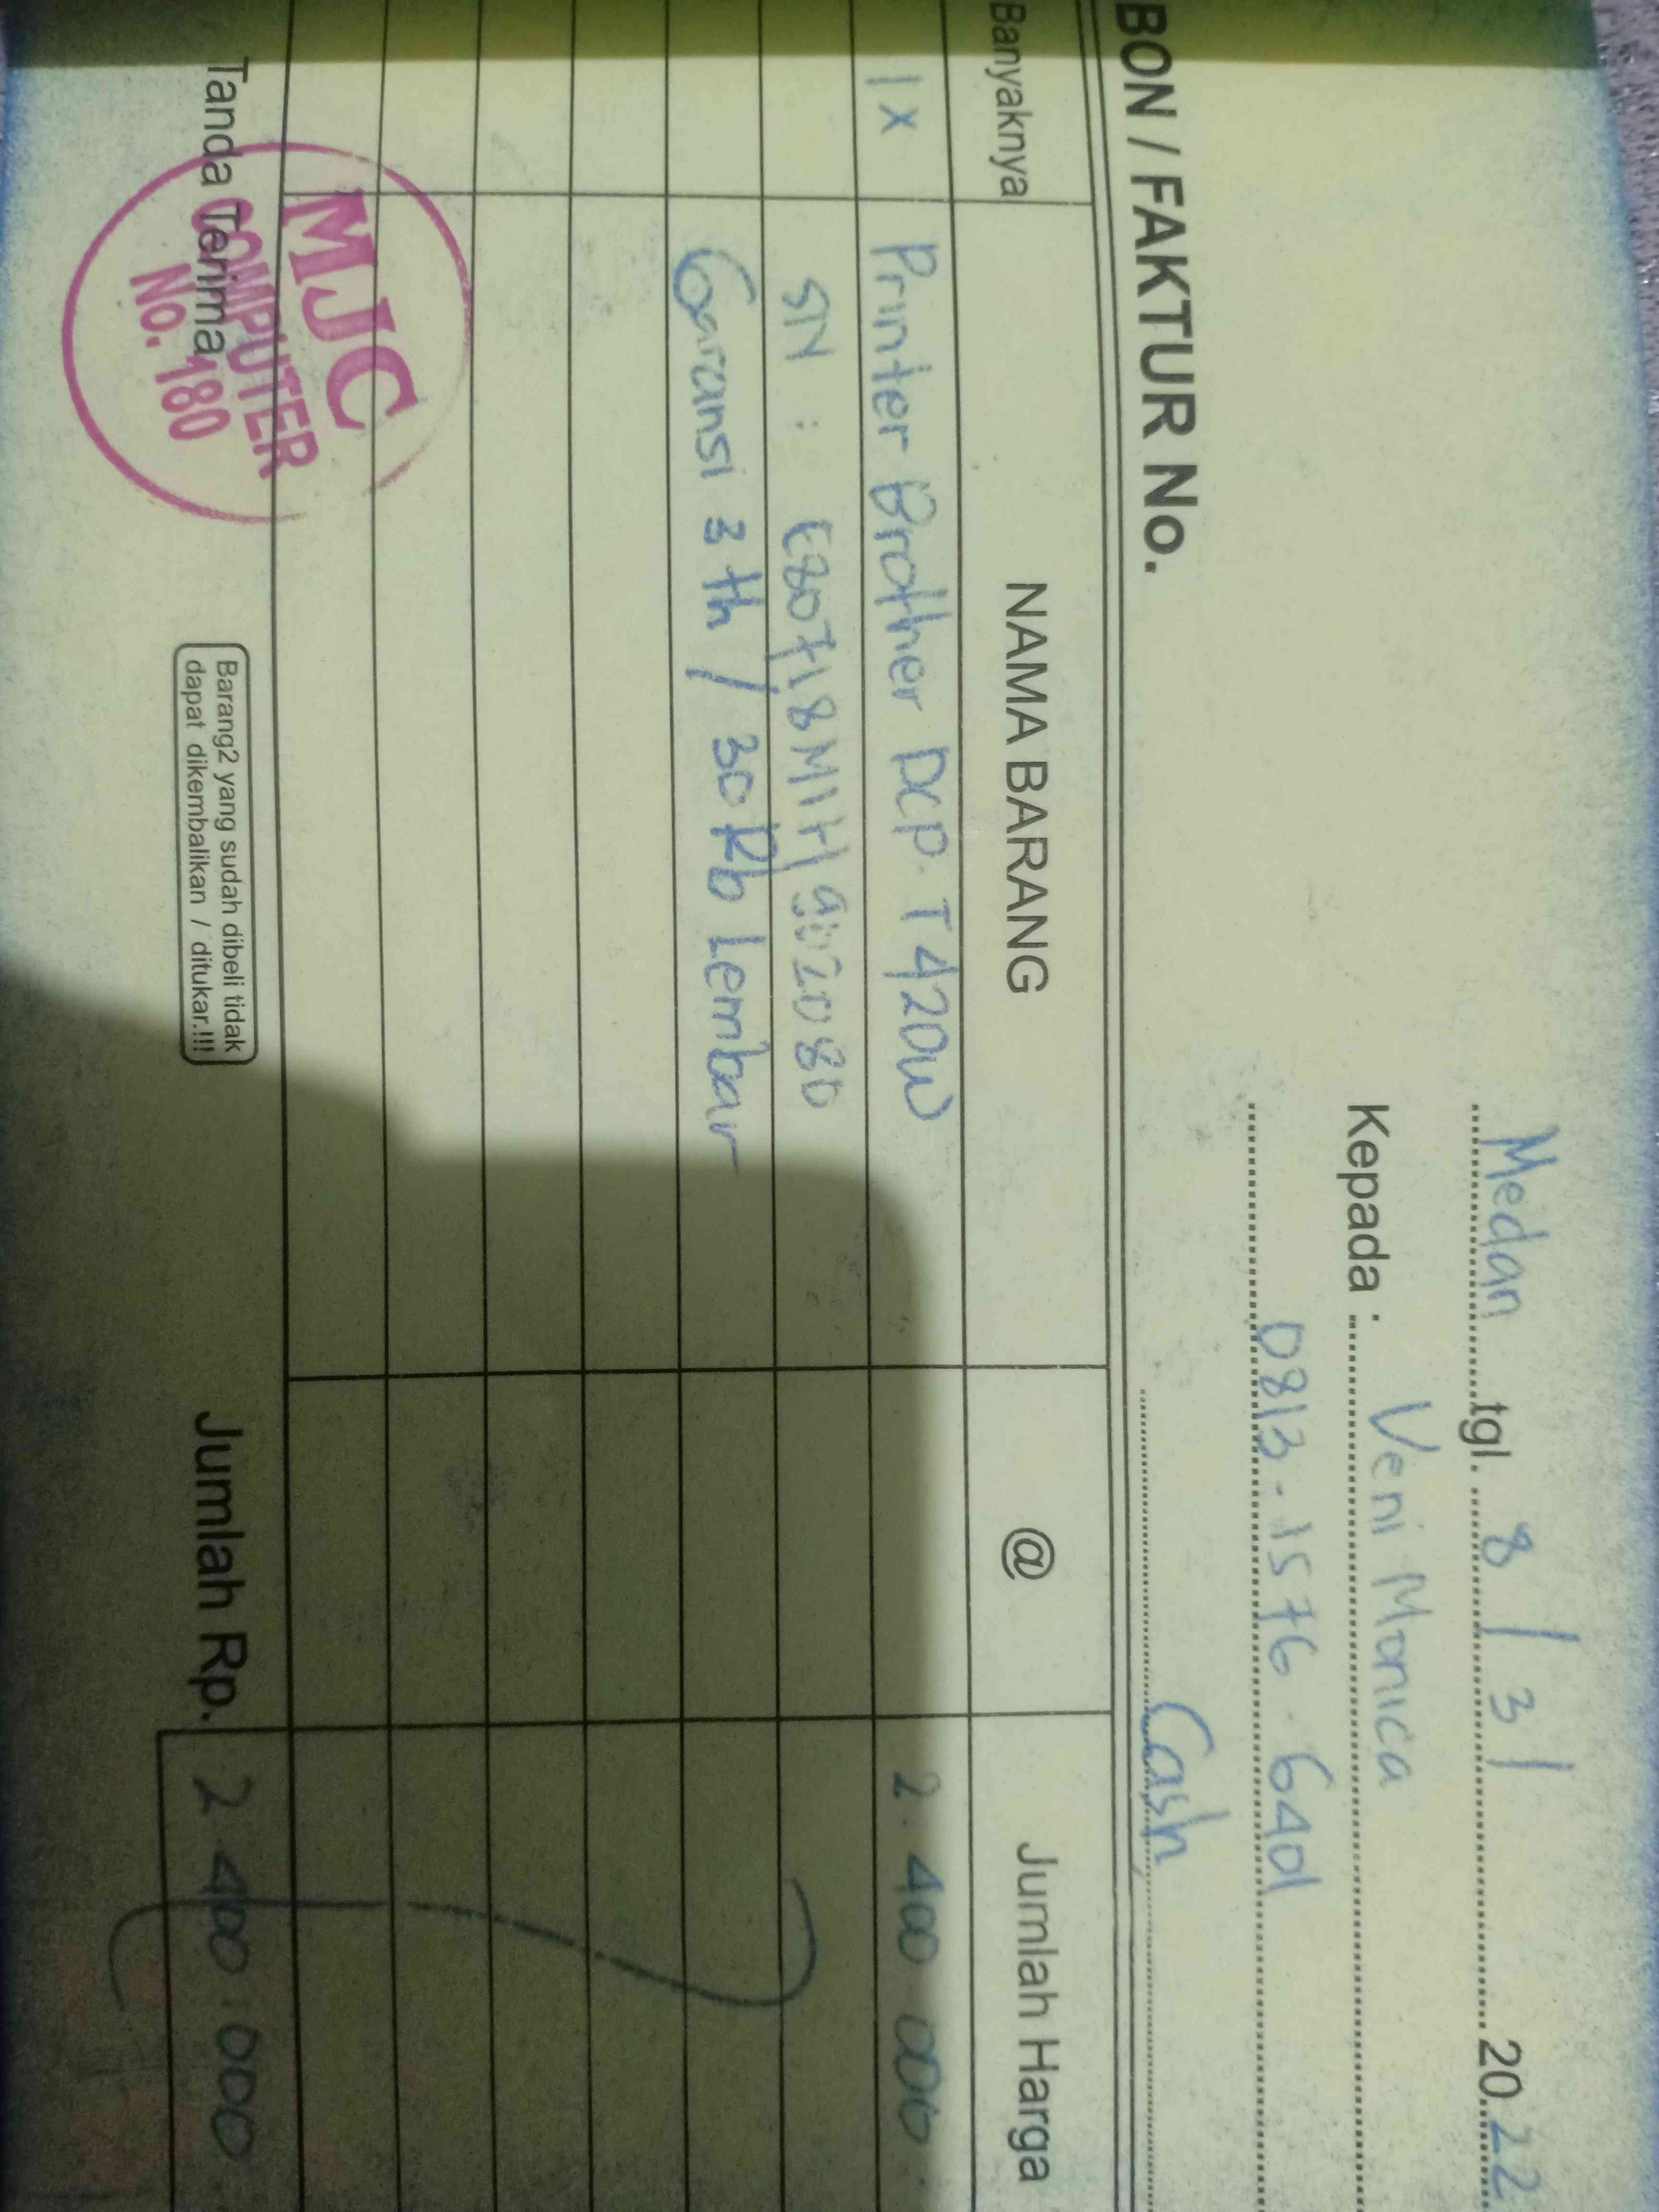 Medan tgl. 8 / 3 / 2022
Kepada : Veni Monica
0813-1576-6401
BON / FAKTUR No.
Cash
Banyaknya NAMA BARANG @ Jumlah Harga
1 x Printer Brother DCP. T420W 2.400.000.
SN :
Garansi 3 th / 30 Rb Lembar
Tanda Terima
MJC
COMPUTER
No. 180
Barang2 yang sudah dibeli tidak
dapat dikembalikan / ditukar.!!!
Jumlah Rp. 2.400.000.